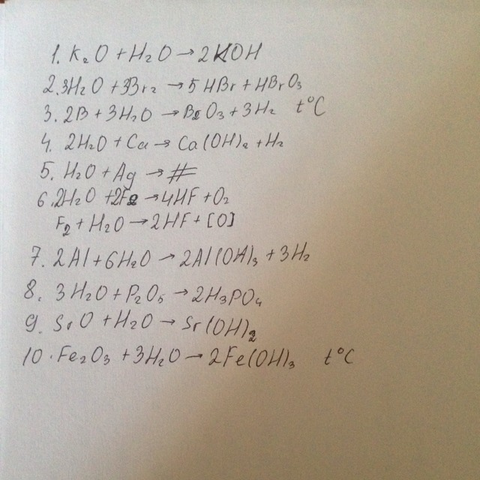 1. K₂O + H₂O → 2KOH
2. 3H₂O + 3Br₂ → 5HBr + HBrO₃
3. 2B + 3H₂O → B₂O₃ + 3H₂ t°C
4. 2H₂O + Ca → Ca(OH)₂ + H₂
5. H₂O + Ag → #
6. 2H₂O + 2F₂ → 4HF + O₂
F₂ + H₂O → 2HF + [O]
7. 2Al + 6H₂O → 2Al(OH)₃ + 3H₂
8. 3H₂O + P₂O₅ → 2H₃PO₄
9. SrO + H₂O → Sr(OH)₂
10. Fe₂O₃ + 3H₂O → 2Fe(OH)₃ t°C